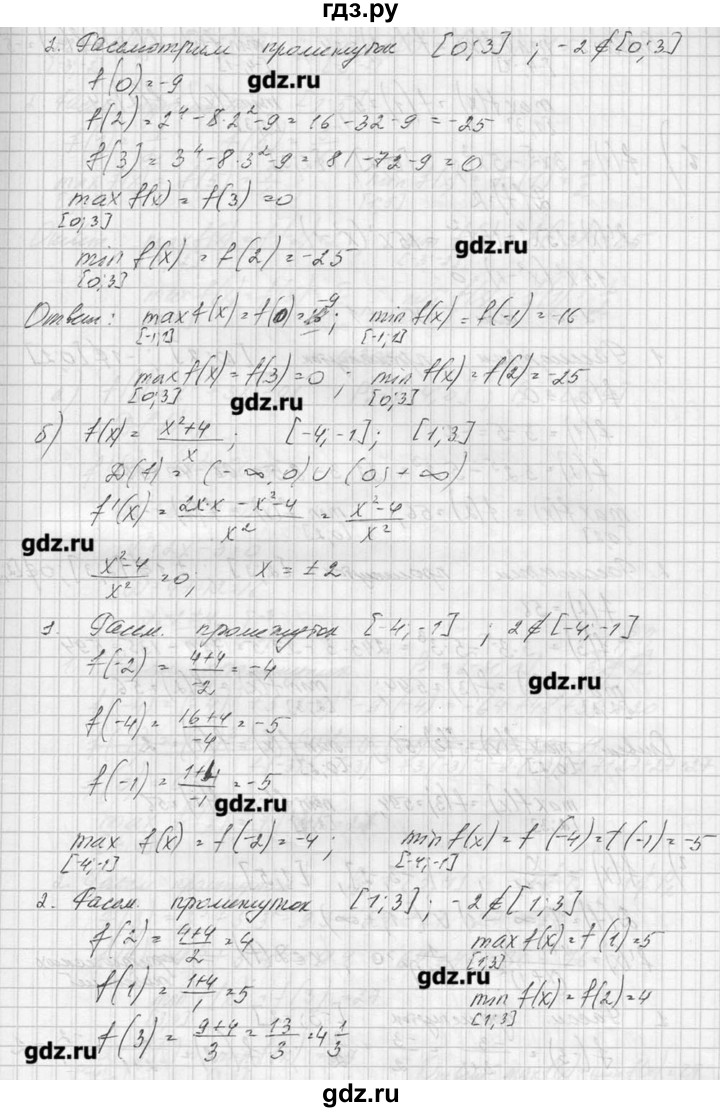 гдз.ру
2. Рассмотрим промежуток [0;3] ; -2∉[0;3]
f(0)=-9
gdz.ru
f(2)=2⁴-8·2²-9=16-32-9=-25
f(3)=3⁴-8·3²-9=81-72-9=0
max f(x)=f(3)=0
[0;3]
gdz.ru
min f(x)=f(2)=-25
[0;3]
Ответ: max f(x)=f(0)=-9; min f(x)=f(-1)=-16
[-1;1] [-1;1]
max f(x)=f(3)=0 ; min f(x)=f(2)=-25
[0;3] gdz.ru [0;3]
б) f(x)= (x²+4)/x ; [-4;-1]; [1;3]
D(f)=(-∞,0)∪(0;+∞)
f'(x)= (2x·x-x²-4)/x² = (x²-4)/x²
gdz.ru
(x²-4)/x² =0; x=±2
1. Рассм. промежуток [-4;-1] ; 2∉[-4;-1]
f(-2) = (4+4)/-2 = -4
gdz.ru
f(-4) = (16+4)/-4 = -5
f(-1) = (1+4)/-1 = -5
gdz.ru
max f(x)=f(-2)=-4; min f(x)=f(-4)=f(-1)=-5
[-4;-1] [-4;-1]
2. Рассм. промежуток [1;3]; -2∉[1;3]
f(2)= (4+4)/2 =4 max f(x)=f(1)=5
[1;3]
gdz.ru
f(1)= (1+4)/1 =5 min f(x)=f(2)=4
[1;3]
f(3)= (9+4)/3 = 13/3 =4 1/3
gdz.ru
gdz.ru